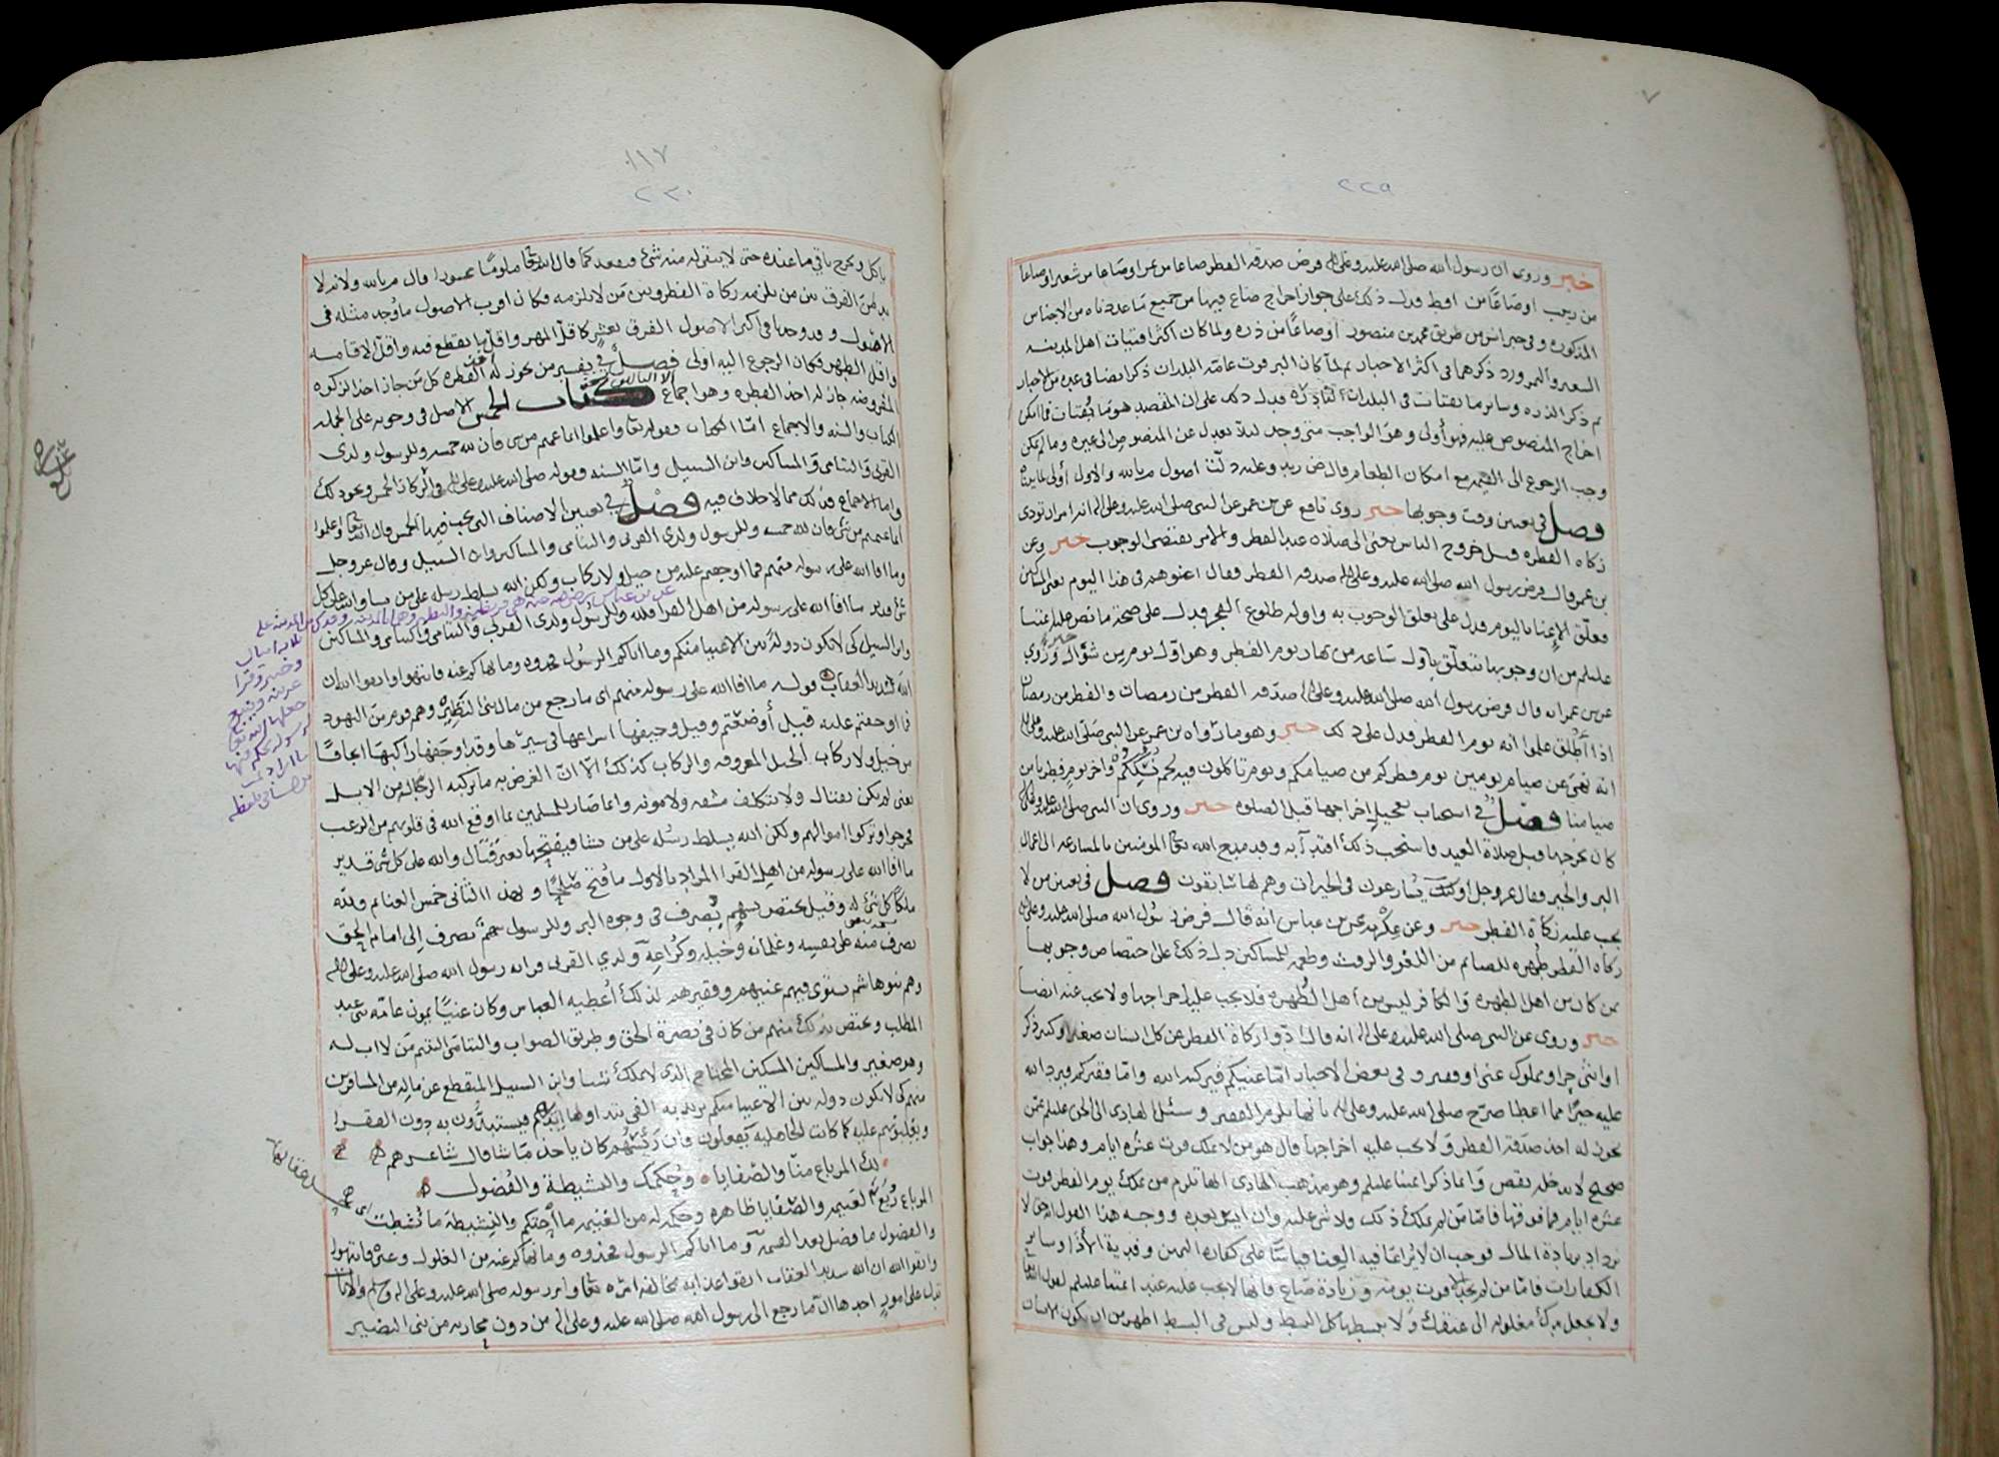 ٢٢٩
خبر وروي ان رسول الله صلى الله عليه وعلى اله فرض صدقة الفطر صاعا من تمر اوصاعا من شعير اوصاعا
من زبيب اوصاعًا من اقط فدل ذلك على جواز اخراج صاع فيها من جميع ما عددناه من الاجناس
المذكوره وفي خبر اخر من طريق محمد بن منصور اوصاعًا من ذره ولما كان اكثر اقتيات اهل المدينه
الشعير والتمر ورد ذكرهما في اكثر الاخبار ثم لما كان البر قوت عامة البلدان ذكر ايضا في عدة من الاخبار
ثم ذكر الذره وسائر ما يقتات في البلدان فدل ذلك على ان المقصد هو ما يُقتات فما امكن
اخراج المنصوص عليه فهو أولى وهو الواجب متى وجد لئلا يعدل عن المنصوص الى غيره وما لم يمكن
وجب الرجوع الى القيمه مع امكان الطعام وعليه دلت اصول م بالله والاول أولى
فصل في تعيين وقت وجوبها خبر روى نافع عن بن عمر عن النبي صلى الله عليه وعلى اله انه امر ان تودى
زكاه الفطره قبل خروج الناس يعنى الى صلاة عيد الفطر والامر يقتضى الوجوب خبر وعن
بن عمر قال فرض رسول الله صلى الله عليه وعلى اله صدقة الفطر وقال اغنوهم في هذا اليوم يعنى المساكين
فعلّق الإغنا باليوم فدل على تعلق الوجوب به واوله طلوع الفجر فدل على صحة ما نص عليه ائمتنا
عليهم من ان وجوبها يتعلّق بأول ساعه من نهار يوم الفطر وهو اوّل يوم من شوّال خبر ورُوي
عن بن عمر انه قال فرض رسول الله صلى الله عليه وعلى اله صدقة الفطر من رمضان والفطر من رمضان
اذا أُطلق علموا انه يوم الفطر فدل على ذلك خبر وهو ما رواه بن عمر عن النبي صلى الله عليه وعلى اله
انه نهى عن صيام يومين يوم فطركم من صيامكم ويوم تاكلون فيه لحم نُسُككم واخر يوم فطرنا من
صيامنا فصل في استحباب تعجيل إخراجها قبل الصلوه خبر وروي ان النبي صلى الله عليه وعلى اله
كان يخرجها قبل صلاة العيد فاستحب ذلك اقتدآ به وقد مدح الله تعالى المومنين بالمسارعه الى اعمال
البر والخير فقال عز وجل اولئك يُسارعون في الخيرات وهم لها سابقون فصل في تعيين من لا
يجب عليه زكاة الفطر خبر وعن عِكرمه عن بن عباس انه قال فرض رسول الله صلى الله عليه وعلى اله
زكاه الفطر طُهره للصائم من اللغو والرفث وطعمه للمساكين دل ذلك على اختصاص وجوبها
بمن كان من اهل الطهره والكافر ليس من أهل الطُهره فلا يجب عليه اخراجها ولا يجب عنه ايضا
خبر وروي عن النبي صلى الله عليه وعلى اله انه قال ادّوا زكاة الفطر عن كل انسان صغير اوكبير ذكر
اوانثى حر اومملوك غنى اوفقير وفي بعض الاخبار امّا غنيكم فيزكيه الله وامّا فقيركم فيرد الله
عليه خيرًا مما اعطا صرّح صلى الله عليه وعلى اله بانها تلزم الفقير وسئل الهادي الى الحق عليلم عمن
يجوز له اخذ صدقة الفطر ولا يجب عليه اخراجها قال هو من لا يملك قوت عشره ايام وهذا جواب
صحيح لا يدخله نقص وانما ذكر ائمتنا عليلم وهو مذهب الهادى انها تلزم من يملك يوم الفطر قوت
عشره ايام فما فوقها فامّا من لم يملك ذلك ولا شى عليه وان ايسر بعده ووجه هذا القول انه حق لا
يزداد بزيادة المال فوجب ان لا يُراعا فيه الغِنا قياسًا على كفارة اليمين وفدية الأذا وسائر
الكفارات فامّا من لم يجد الا قوت يومه وزيادة صَاع فانها لا يجب عليه عند ائمتنا عليلم لقول الله تعالى
ولا تجعل يدك مغلوله الى عنقك وَلا تبسطها كل البسط وليس في البسط اظهر من ان يكون الانسان
١١٧
٢٣٠
ياكل ويخرج باقي ما عنده حتى لا يبقى له منه شئ فيقعد كما قال الله تعالى ملومًا محسورا قال م بالله ولانه لا
بد من الفرق بين من يلزمه زكاة الفطر وبين مَن لا يلزمه وكان اقرب الاصول ما وُجد مثله في
الاصول وقد وجدنا في اكثر الاصول الفرق بعشر كاقل المهر واقل ما يقطع فيه واقل الاقامه
واقل الطهر فكان الرجوع اليه اولى فصل في تفسير من يجوز له أخذ الفطره كل مَن جاز اخذ الزكوه
المفروضه جاز له اخذ الفطره وهو اجماع كتاب الخمس الاصل في وجوبه على الجمله
الكتاب والسنه والاجماع امّا الكتاب فقوله تعا واعلموا انما غنمتم من شي فان لله خمسه وللرسول ولذى
القربى واليتامى والمساكين وابن السبيل وامّا السنه فقوله صلى الله عليه وعلى اله وفي الركاز الخمس ونحو ذلك
واما الاجماع فذلك مما لا خلاف فيه فصل في تعيين الاصناف التي يجب فيها الخمس قال الله تعا واعلموا
انما غنمتم من شئ فان لله خمسه وللرسول ولذى القربى واليتامى والمساكين وابن السبيل وقال عز وجل
وما افا الله على رسوله منهم فما اوجفتم عليه من خيل ولا ركاب ولكن الله يسلط رسله على من يشا والله على كل
شئ قدير ما افا الله على رسوله من اهل القرا فلله وللرسول ولذى القربى واليتامى والمساكين
وابن السبيل كى لا يكون دولة بين الاغنيا منكم وما اتاكم الرسول فخذوه وما نهاكم عنه فانتهوا واتقوا الله ان
الله شديد العقاب قوله ما افا الله على رسوله منهم اى ما رجع من مال بنى النضير وهم قوم من اليهود
فما اوجفتم عليه قيل أوضعتم وقيل وجيفها اسراعها في سيرها وقد اوجفها راكبها ايجافًا
من خيل ولا ركاب الخيل المعروفه والركاب كذلك الّا ان الغرض به ما تركبه الرجّاله من الابل
يعنى لم يكن بقتال ولا بتكلف مشقه ولا مونه وانما صَار للمسلمين بما اوقع الله في قلوبهم من الرعب
فخرجوا وتركوا اموالهم ولكن الله يسلط رسُله على من يشا فيفتحها بغير قتال والله على كل شى قدير
ما افا الله على رسوله من اهل القرا المراد بالاول ما فُتح صُلحًا وبهذا الثاني خمس الغنائم ولله
ملكًا كل شى له وقيل يختص بسهم يُصرف في وجوه البر وللرسول سهم يصرف إلى امام الحق
يصرف منه على نفسه وغلمانه وخيله وكُراعه ولذي القربى قرابه رسول الله صلى الله عليه وعلى اله
وهم بنو هاشم يستوى فيهم غنيهم وفقيرهم لذلك أُعطيه العباس وكان غنيًا يمون عامّه بنى عبد
المطلب ويختص بذلك منهم من كان في نصرة الحق وطريق الصواب واليتامى اليتيم مَن لا اب له
وهو صغير والمساكين المسكين المحتاج الذى لا يملك شيا وابن السبيل المنقطع عن ماله من المسافرين
منهم كى لا يكون دوله بين الاغنيا منكم يريد به الفي فيستبدُّون به دون الفقرا
كما كانت الجاهليه يفعلون فان رَئيسهُم كان ياخذ مَا شا قال شاعرهم
لك المرباع منّا والصّفايا وحُكمك والنشيطة والفُضول
المرباع رُبُع الغنيمه والصّفايا ظاهره وحكمه له من الغنيمه والنشيطه ما نشطت
والفضول ما فضل بعد القسمه وما اتاكم الرسول فخذوه وما نهاكم عنه من الغلول وغيره فانتهوا
واتقوا الله ان الله شديد العقاب اتقوا عذابه بمخالفه امره تعا وامر رسوله صلى الله عليه وعلى اله
تدل على امور احدها ان ما رجع الى رسول الله صلى الله عليه وعلى اله من دون محاربه من بنى النضير